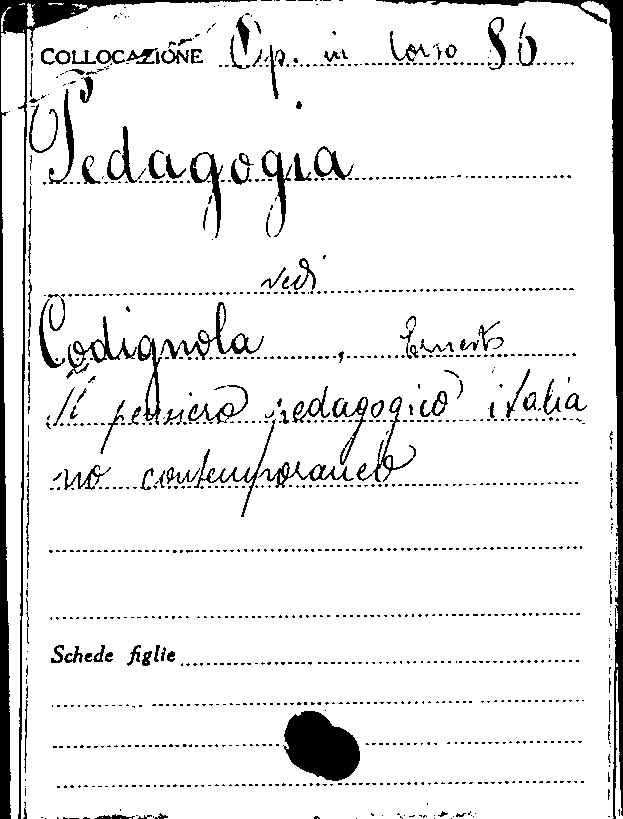 COLLOCAZIONE Op. in corso 86
Pedagogia
vedi
Codignola, Ernesto
Il pensiero pedagogico italia
no contemporaneo
Schede figlie